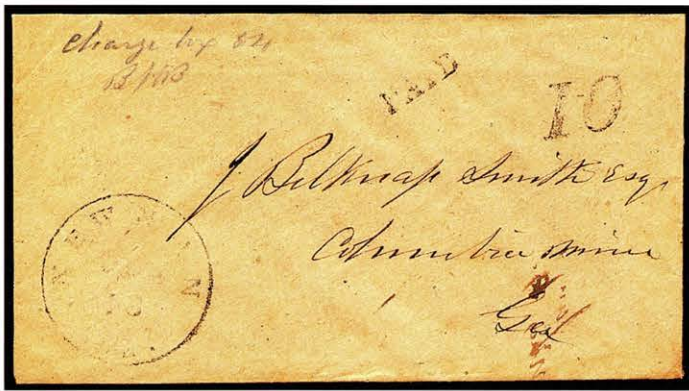 Charge box 84
PAID
10
J Belknap Smith Esq
Columbia Mine
Geo